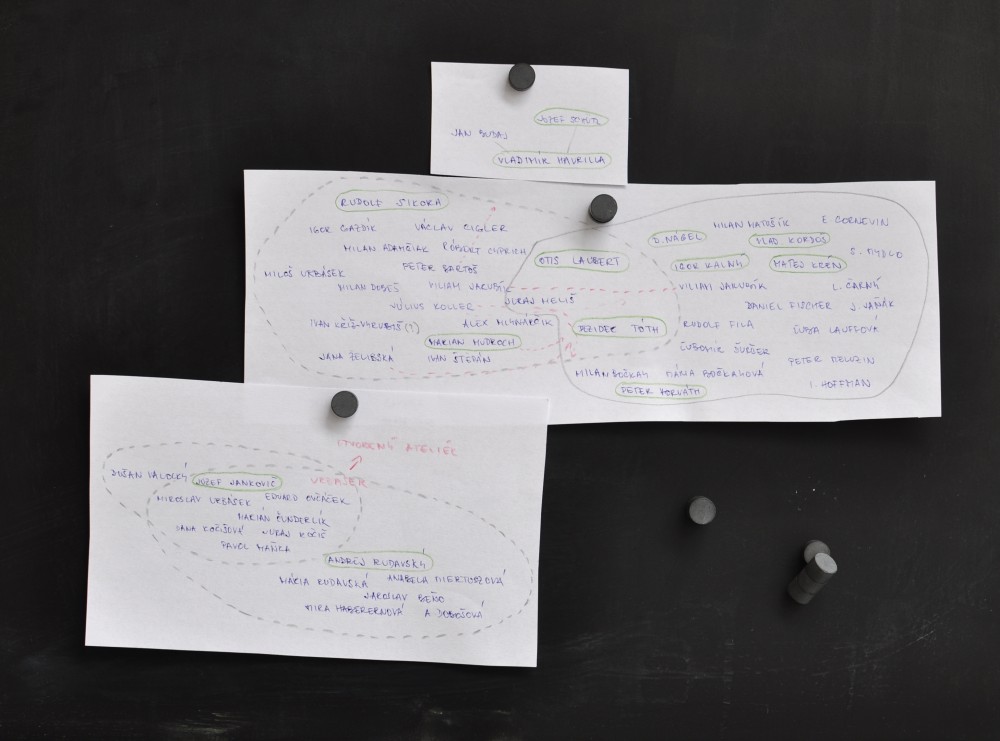 JOZEF SCHÜTZ
JAN BUDAJ
VLADIMÍR HAVRILLA
RUDOLF SIKORA
IGOR GAZDÍK VÁCLAV CIGLER
MILAN ADAMČIAK RÓBERT CYPRICH
PETER BARTOŠ
MILOŠ URBÁSEK
MILAN DOBEŠ VILIAM JAKUBÍK
JÚLIUS KOLLER JURAJ MELIŠ
ALEX MLYNÁRČIK
MARIAN MUDROCH
JANA ŽELIBSKÁ IVAN ŠTEPÁN
OTIS LAUBERT
DEZIDER TÓTH
MILAN MATOŠÍK E. CORNEVIN
D. NÁGEL VLAD KORDOŠ
IGOR KALNÝ MATEJ KRÉN
VILIAM JAKUBÍK L. ČARNÝ
DANIEL FISCHER
RUDOLF FILA ĽUBA LAUFFOVÁ
PETER MELUZIN
MILAN BOČKAY MÁRIA BOČKAYOVÁ
PETER HORVÁTH I. HOFFMAN
OTVORENÝ ATELIÉR
DUŠAN VALOCKÝ JOZEF JANKOVIČ
MIROSLAV URBÁSEK EDUARD OVČÁČEK
MARIÁN ČUNDERLÍK
JANA KOČIŠOVÁ JURAJ KOČIŠ
PAVOL MAŇKA
ANDREJ RUDAVSKÝ
MÁRIA RUDAVSKÁ ANABELA MIERTUSZOVÁ
JAROSLAV BEŇO
MIRA HABERERNOVÁ A DOBOŠOVÁ